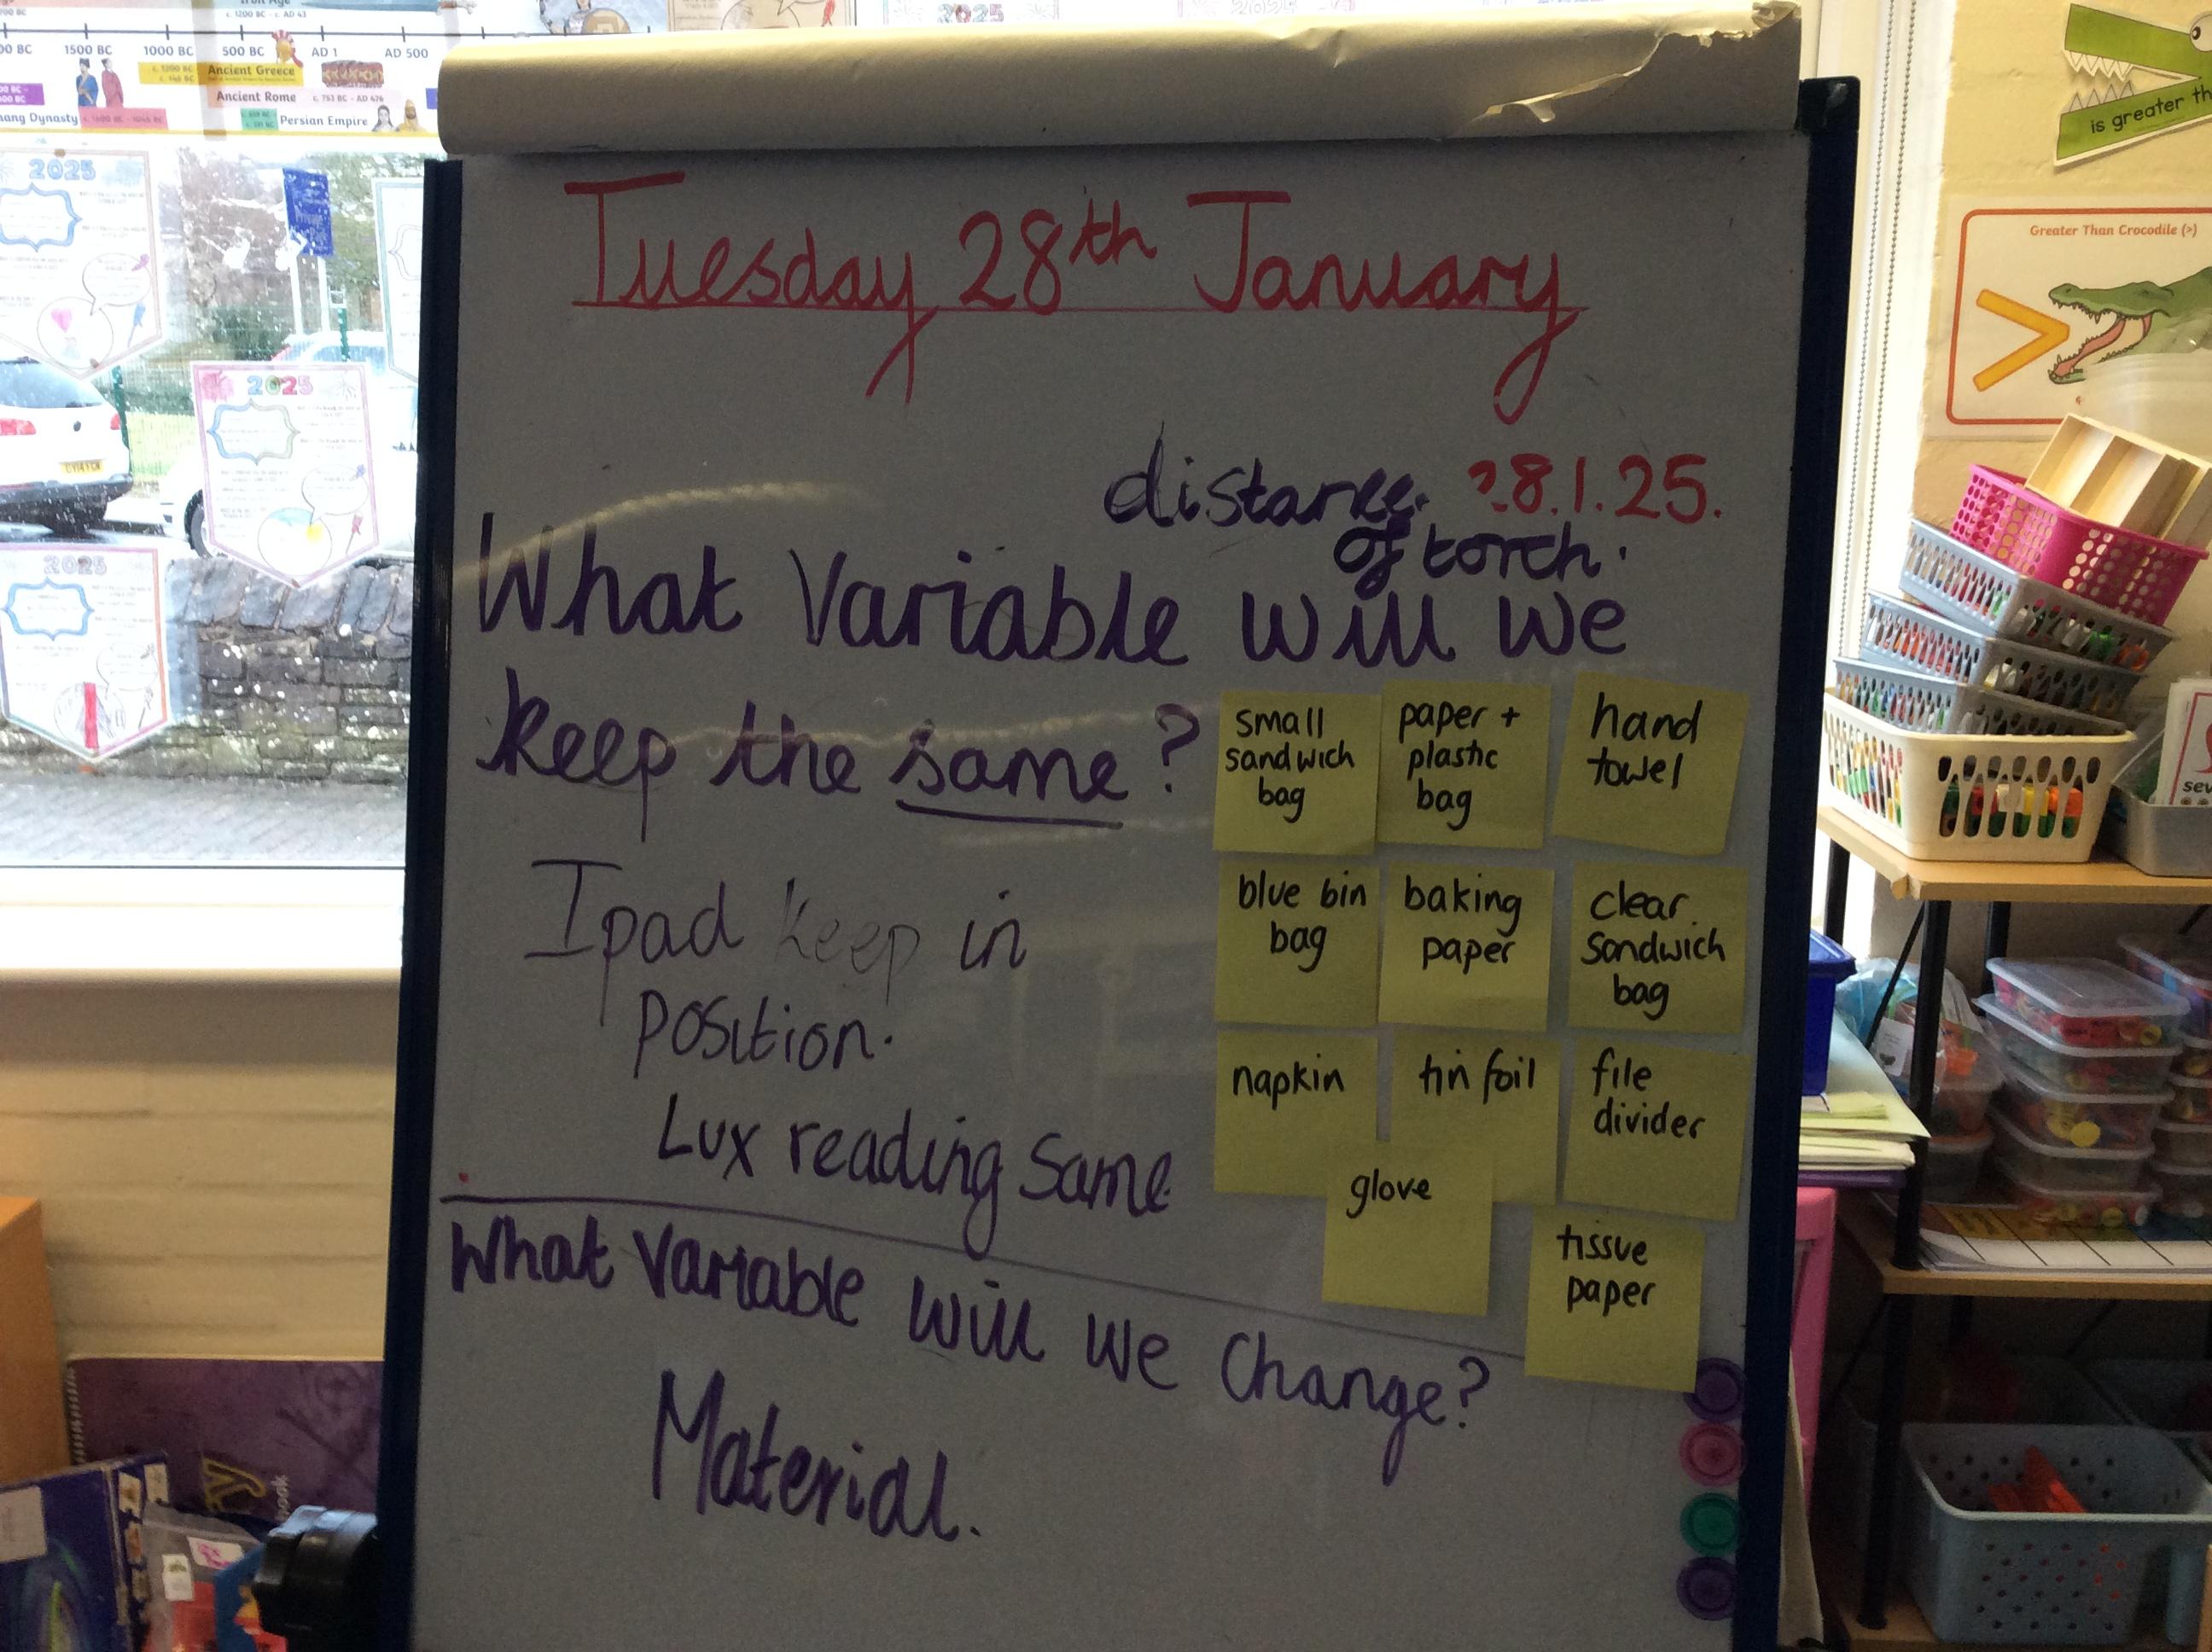 Iron Age
c. 1200 BC - c. AD 43
1500 BC
1000 BC
500 BC
AD 1
AD 500
Ancient Greece
Ancient Rome c. 753 BC - AD 476
Persian Empire
2025
2025
2025
2025
is greater th
Greater Than Crocodile (>)
>
Tuesday 28th January
distance 28.1.25.
of torch.
What Variable will we
keep the same?
Ipad keep in
position.
Lux reading same
What Variable will we change?
Material.
small
sandwich
bag
paper +
plastic
bag
hand
towel
blue bin
bag
baking
paper
clear
sandwich
bag
napkin
tin foil
file
divider
glove
tissue
paper